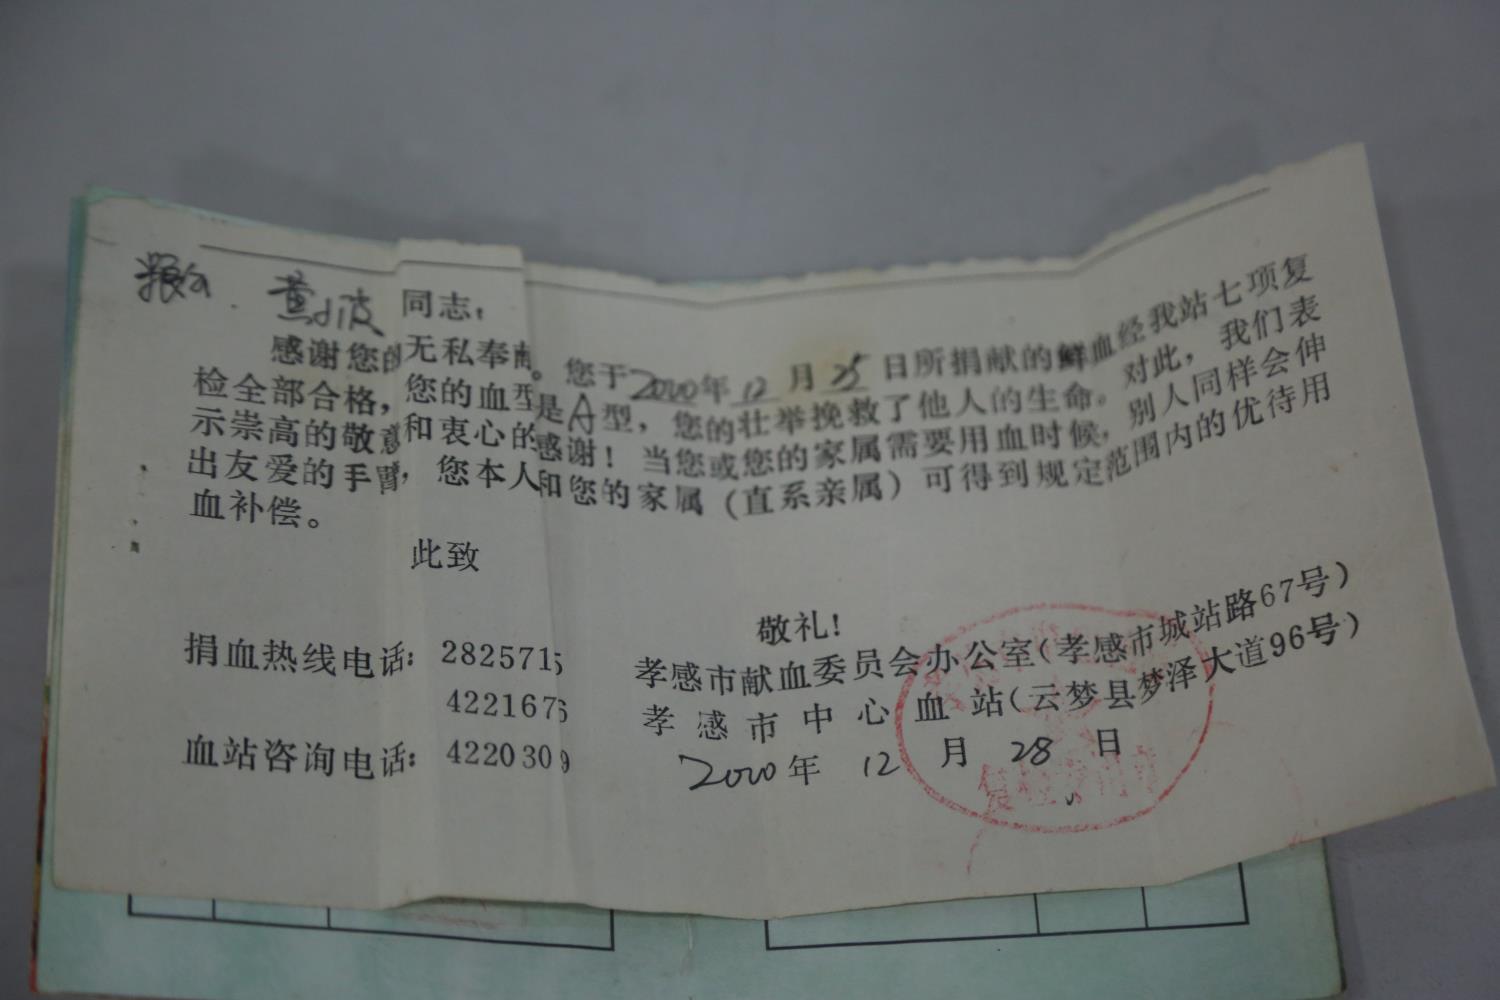 黄小波 同志:
感谢您的无私奉献。您于2000年12月25日所捐献的鲜血经我站七项复
检全部合格,您的血型是A型,您的壮举挽救了他人的生命。对此,我们表
示崇高的敬意和衷心的感谢!当您或您的家属需要用血时候,别人同样会伸
出友爱的手臂,您本人和您的家属(直系亲属)可得到规定范围内的优待用
血补偿。
此致
敬礼!
捐血热线电话:2825715
孝感市献血委员会办公室(孝感市城站路67号)
4221676
孝感市中心血站(云梦县梦泽大道96号)
血站咨询电话:4220309
2000年12月28日